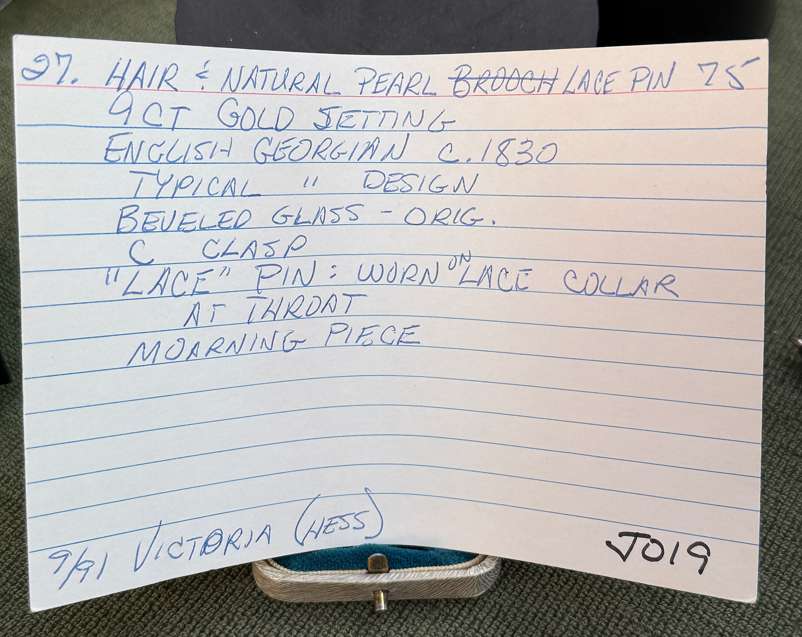 27. HAIR & NATURAL PEARL BROOCH LACE PIN 75
9CT GOLD SETTING
ENGLISH GEORGIAN C. 1830
TYPICAL " DESIGN
BEVELED GLASS - ORIG.
C CLASP
"LACE" PIN: WORN ON LACE COLLAR
AT THROAT
MOARNING PIECE
9/91 VICTORIA (HESS)
J019